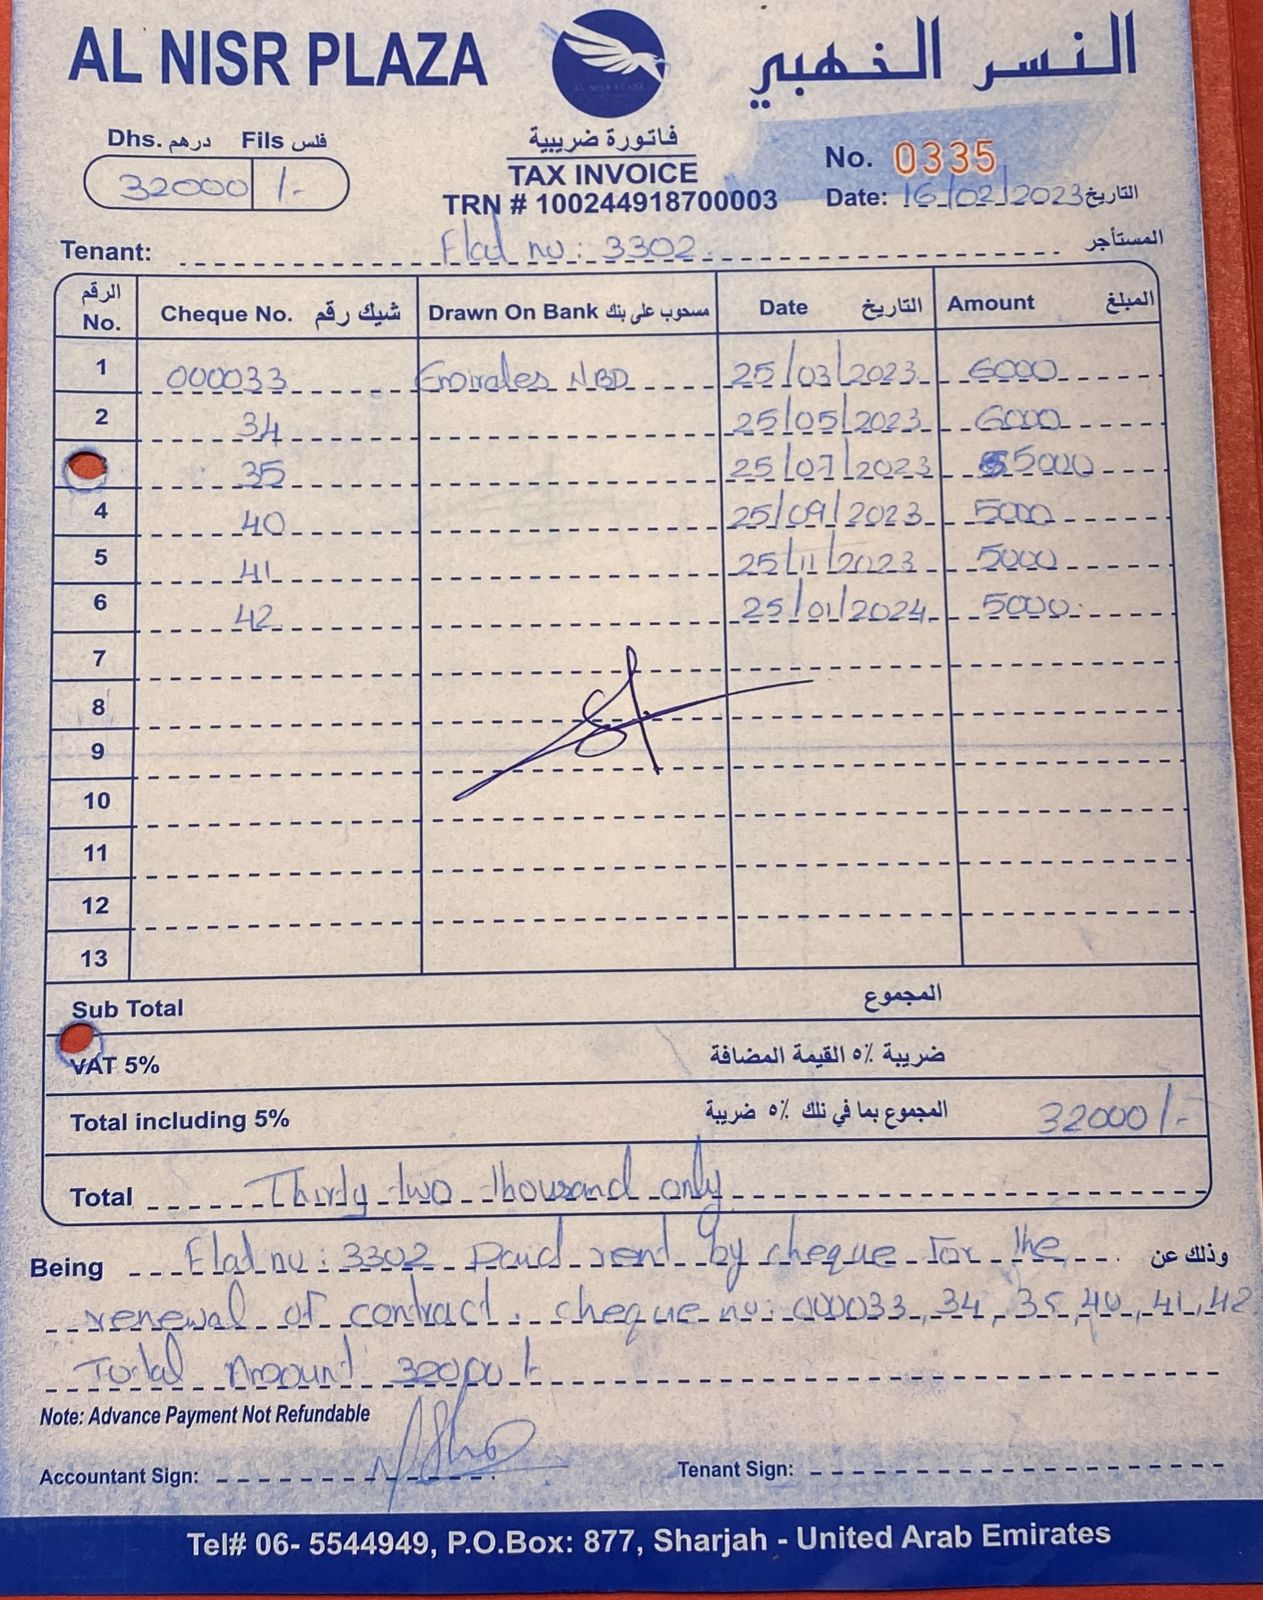 AL NISR PLAZA
النسر الذهبي
Dhs. درهم Fils فلس
32000 /-
فاتورة ضريبية
TAX INVOICE
TRN # 100244918700003
No. 0335
Date: 16/02/2023 التاريخ
Tenant: Flat no: 3302. المستأجر
الرقم No. Cheque No. شيك رقم Drawn On Bank مسحوب على بنك Date التاريخ Amount المبلغ
1 000033 Emirates NBD 25/03/2023 6000
2 34 25/05/2023 6000
35 25/07/2023 5000
4 40 25/09/2023 5000
5 41 25/11/2023 5000
6 42 25/01/2024 5000
7
8
9
10
11
12
13
Sub Total المجموع
VAT 5% ضريبة ٥٪ القيمة المضافة
Total including 5% المجموع بما في ذلك ٥٪ ضريبة 32000/-
Total Thirty two thousand only
Being Flat no: 3302 Paid rent by cheque for the وذلك عن
renewal of contract. cheque no: 000033, 34, 35, 40, 41, 42
Total Amount 32000/-
Note: Advance Payment Not Refundable
Accountant Sign:
Tenant Sign:
Tel# 06- 5544949, P.O.Box: 877, Sharjah - United Arab Emirates